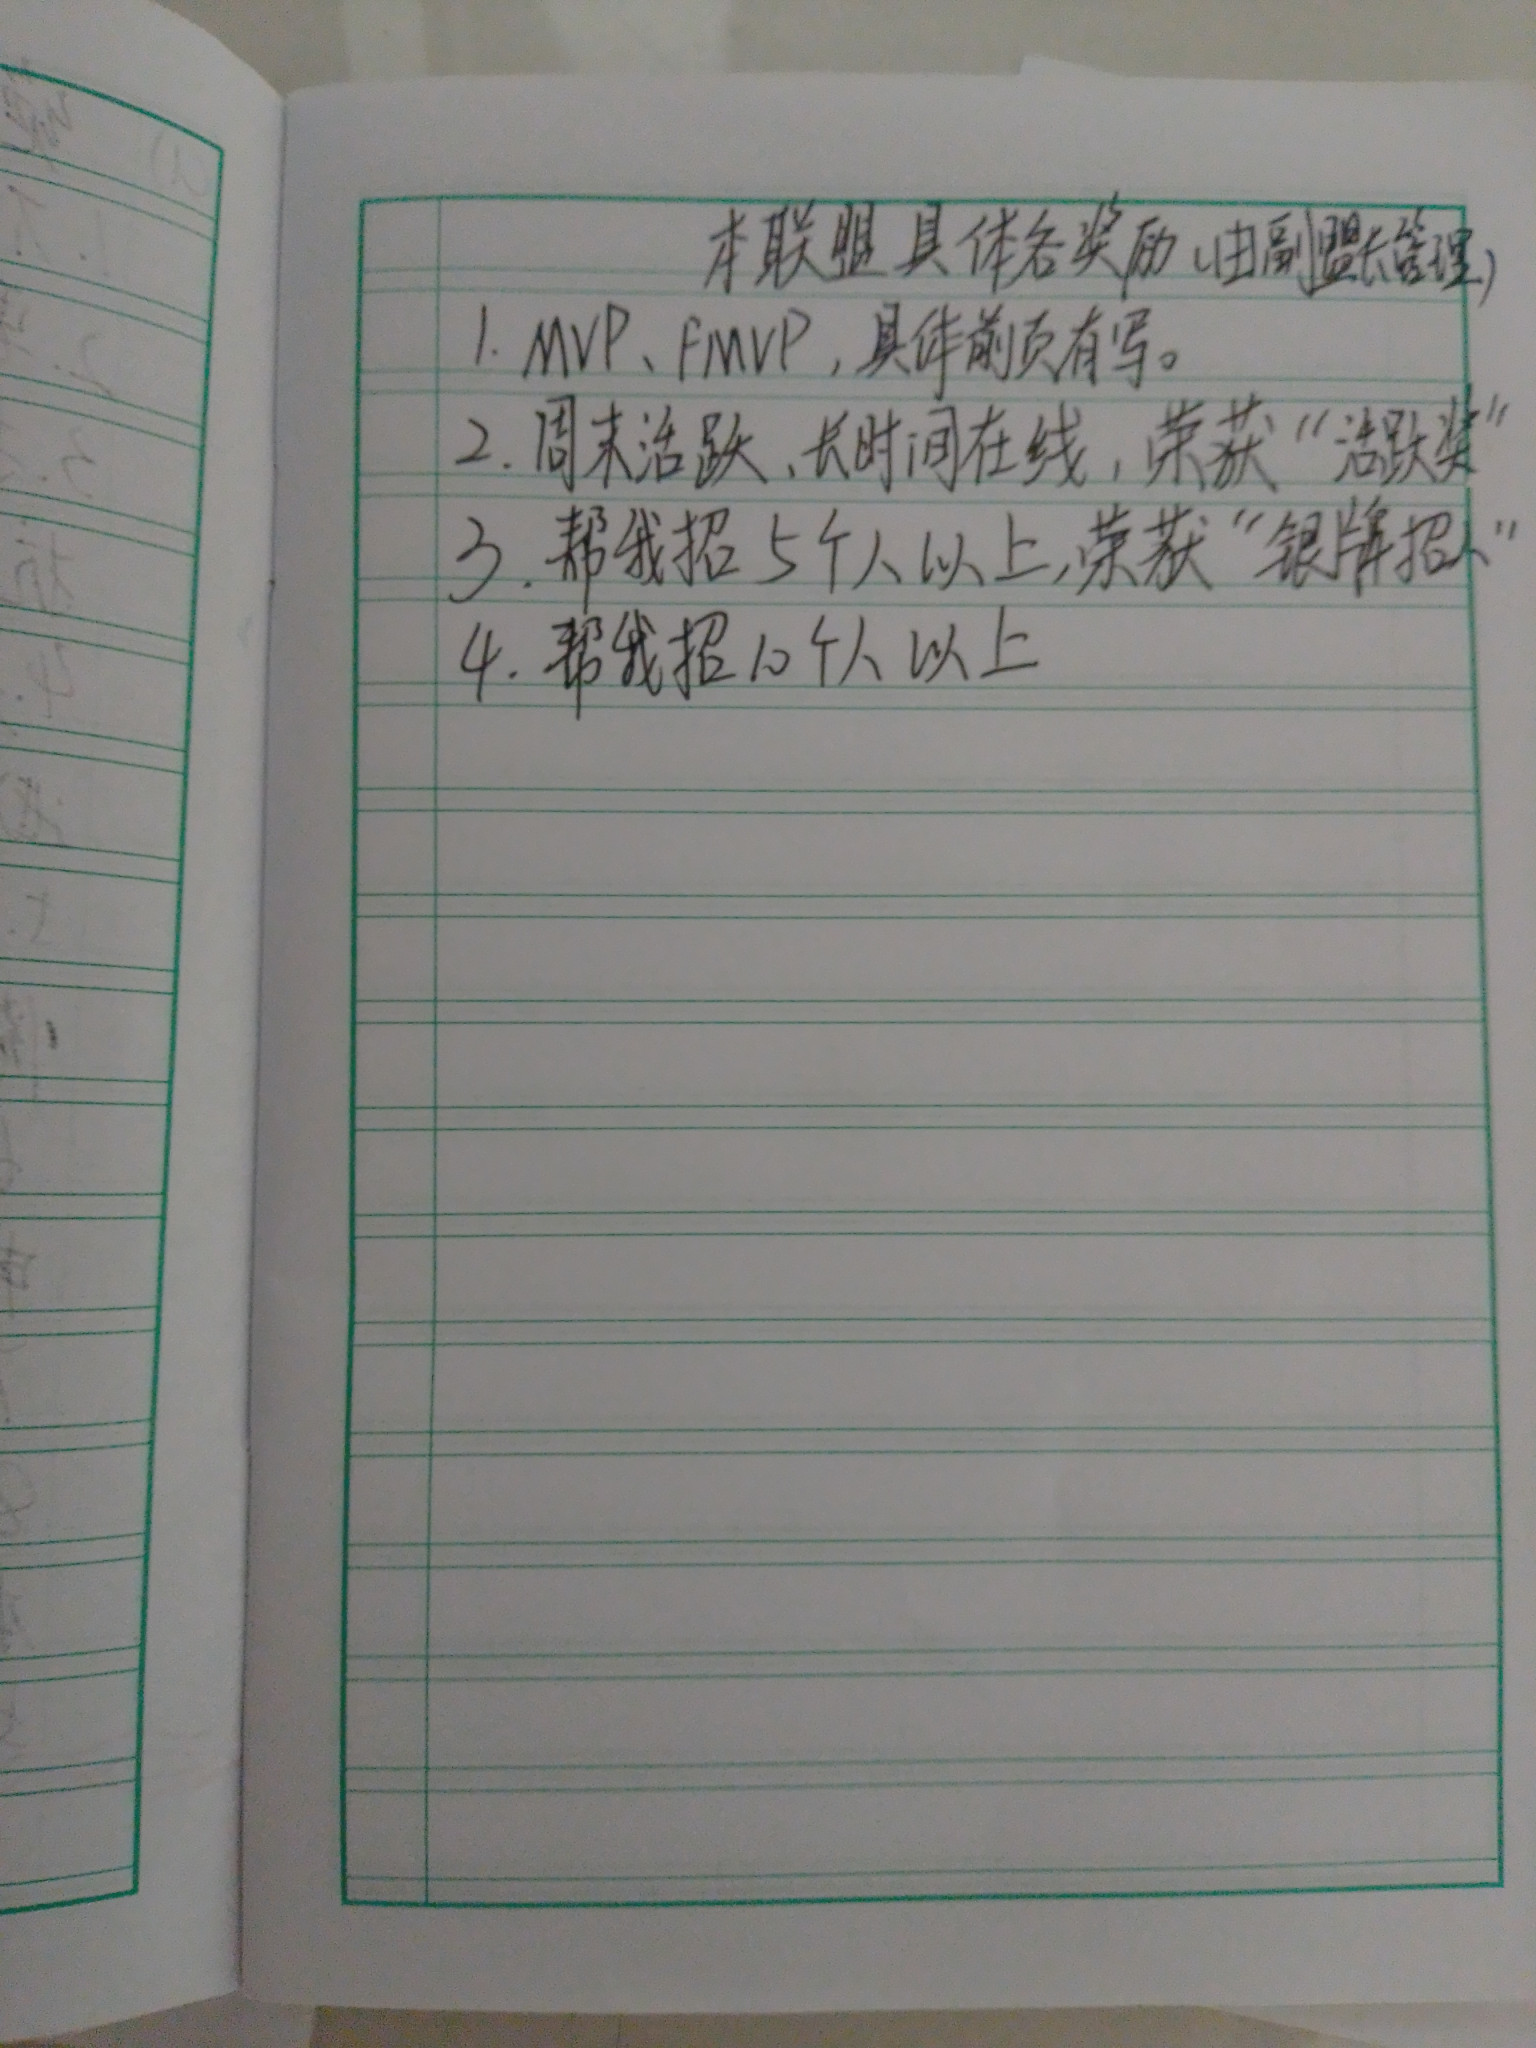 本联盟具体各奖励(由副盟长管理)
1. MVP、FMVP,具体前页有写。
2. 周末活跃、长时间在线,荣获“活跃奖”
3. 帮我招5个人以上,荣获“银牌招人”
4. 帮我招10个人以上